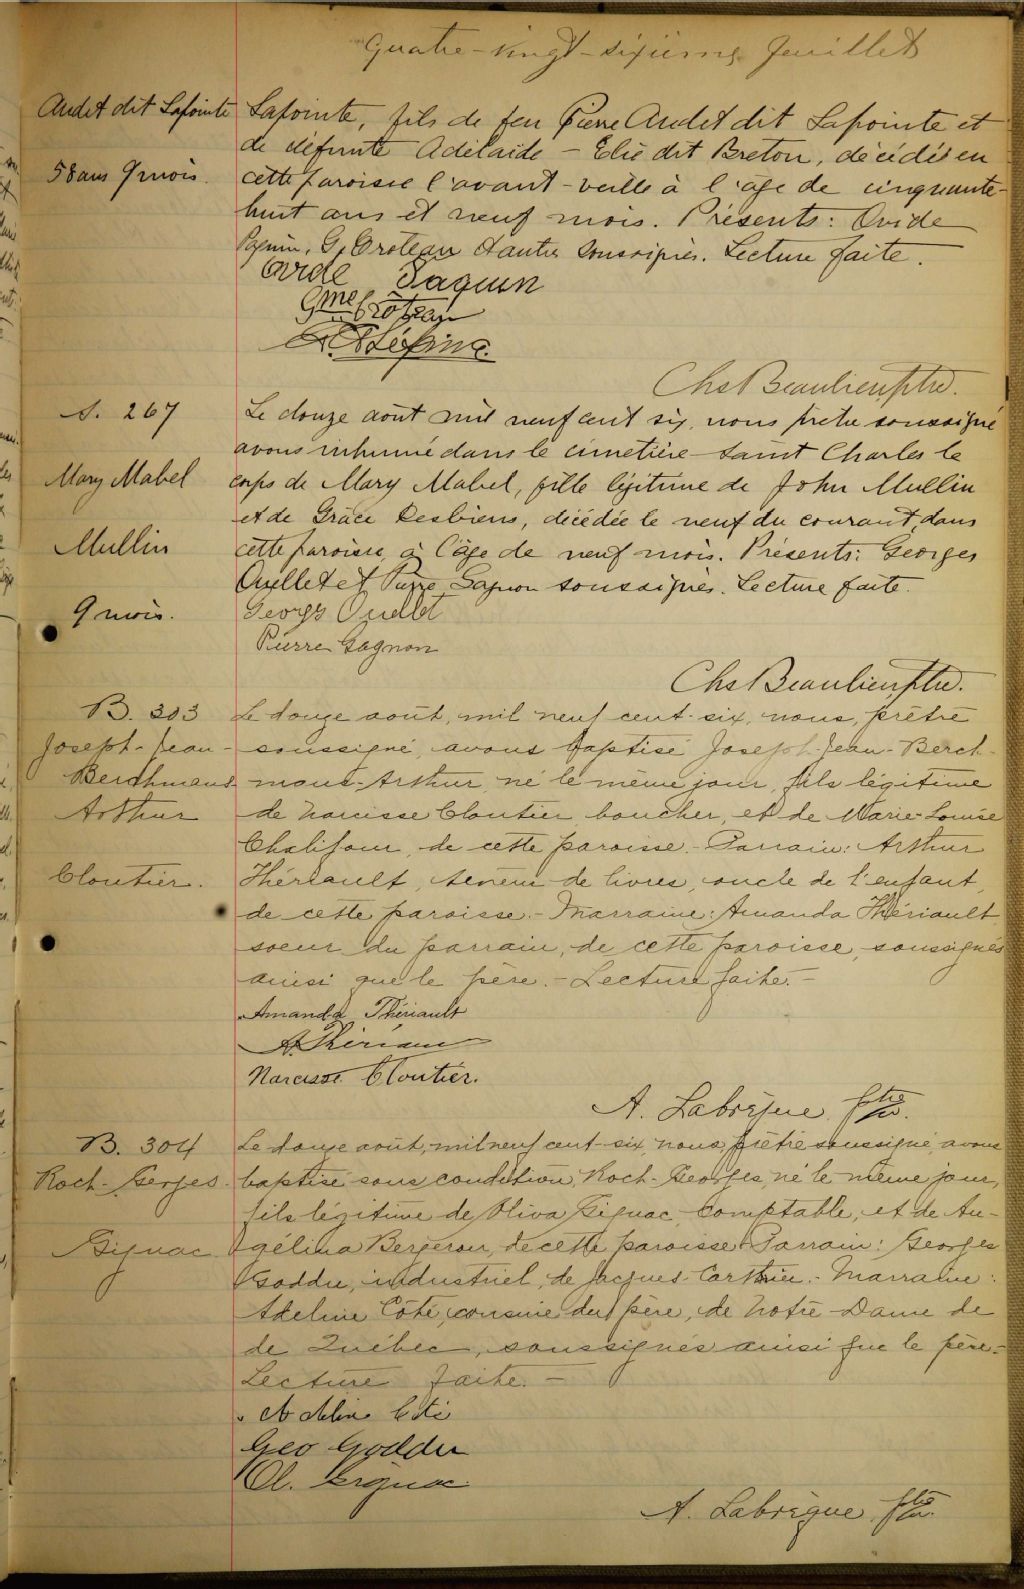 Quatre-vingt-sixième feuillet
Audet dit Lafointe
58 ans 9 mois.
Lafointe, fils de feu Pierre Audet dit Lapointe et
de défunte Adélaide - Elie dit Breton, décédé en
cette paroisse l'avant-veille à l'âge de cinquante-
huit ans et neuf mois. Présents: Ovide
Paquin, G. Croteau & autres soussignés. Lecture faite.
Ovide Paquin
Gme Crôteau
Lépine
Chs Beaulieu, ptre.
S. 267
Mary Mabel
Mullin
9 mois.
Le douze août mil neuf cent six, nous prêtre soussigné
avons inhumé dans le cimetière Saint Charles le
corps de Mary Mabel, fille légitime de John Mullin
et de Grâce Desbiens, décédée le neuf du courant, dans
cette paroisse, à l'âge de neuf mois. Présents: Georges
Ouellet et Pierre Gagnon soussignés. Lecture faite.
Georges Ouellet
Pierre Gagnon
Chs Beaulieu, ptre.
B. 303
Joseph-Jean-
Berchmans
Arthur
Cloutier.
Le douze août, mil neuf cent-six, nous, prêtre
soussigné, avons baptisé Joseph-Jean-Berch-
mans-Arthur, né le même jour, fils légitime
de Narcisse Cloutier boucher, et de Marie-Louise
Chalifour, de cette paroisse.- Parrain: Arthur
Thériault, teneur de livres, oncle de l'enfant,
de cette paroisse.- Marraine: Amanda Thériault
soeur du parrain, de cette paroisse, soussignés
ainsi que le père.- Lecture faite.-
Amanda Thériault
A. Thériault
Narcisse Cloutier.
A. Labrèque ptre.
B. 304
Roch-Georges
Gignac
Le douze août, mil neuf cent-six, nous, prêtre soussigné, avons
baptisé sous condition, Roch-Georges, né le même jour,
fils légitime de Oliva Gignac, comptable, et de An-
gélina Bergeron, de cette paroisse. Parrain: Georges
Goddu, industriel, de Jacques-Cartier.- Marraine:
Adeline Côté, cousine du père, de Notre-Dame de
de Québec, soussignés ainsi que le père.-
Lecture faite.-
Adeline Côté
Geo Goddu
Ol. Gignac
A. Labrèque ptre.